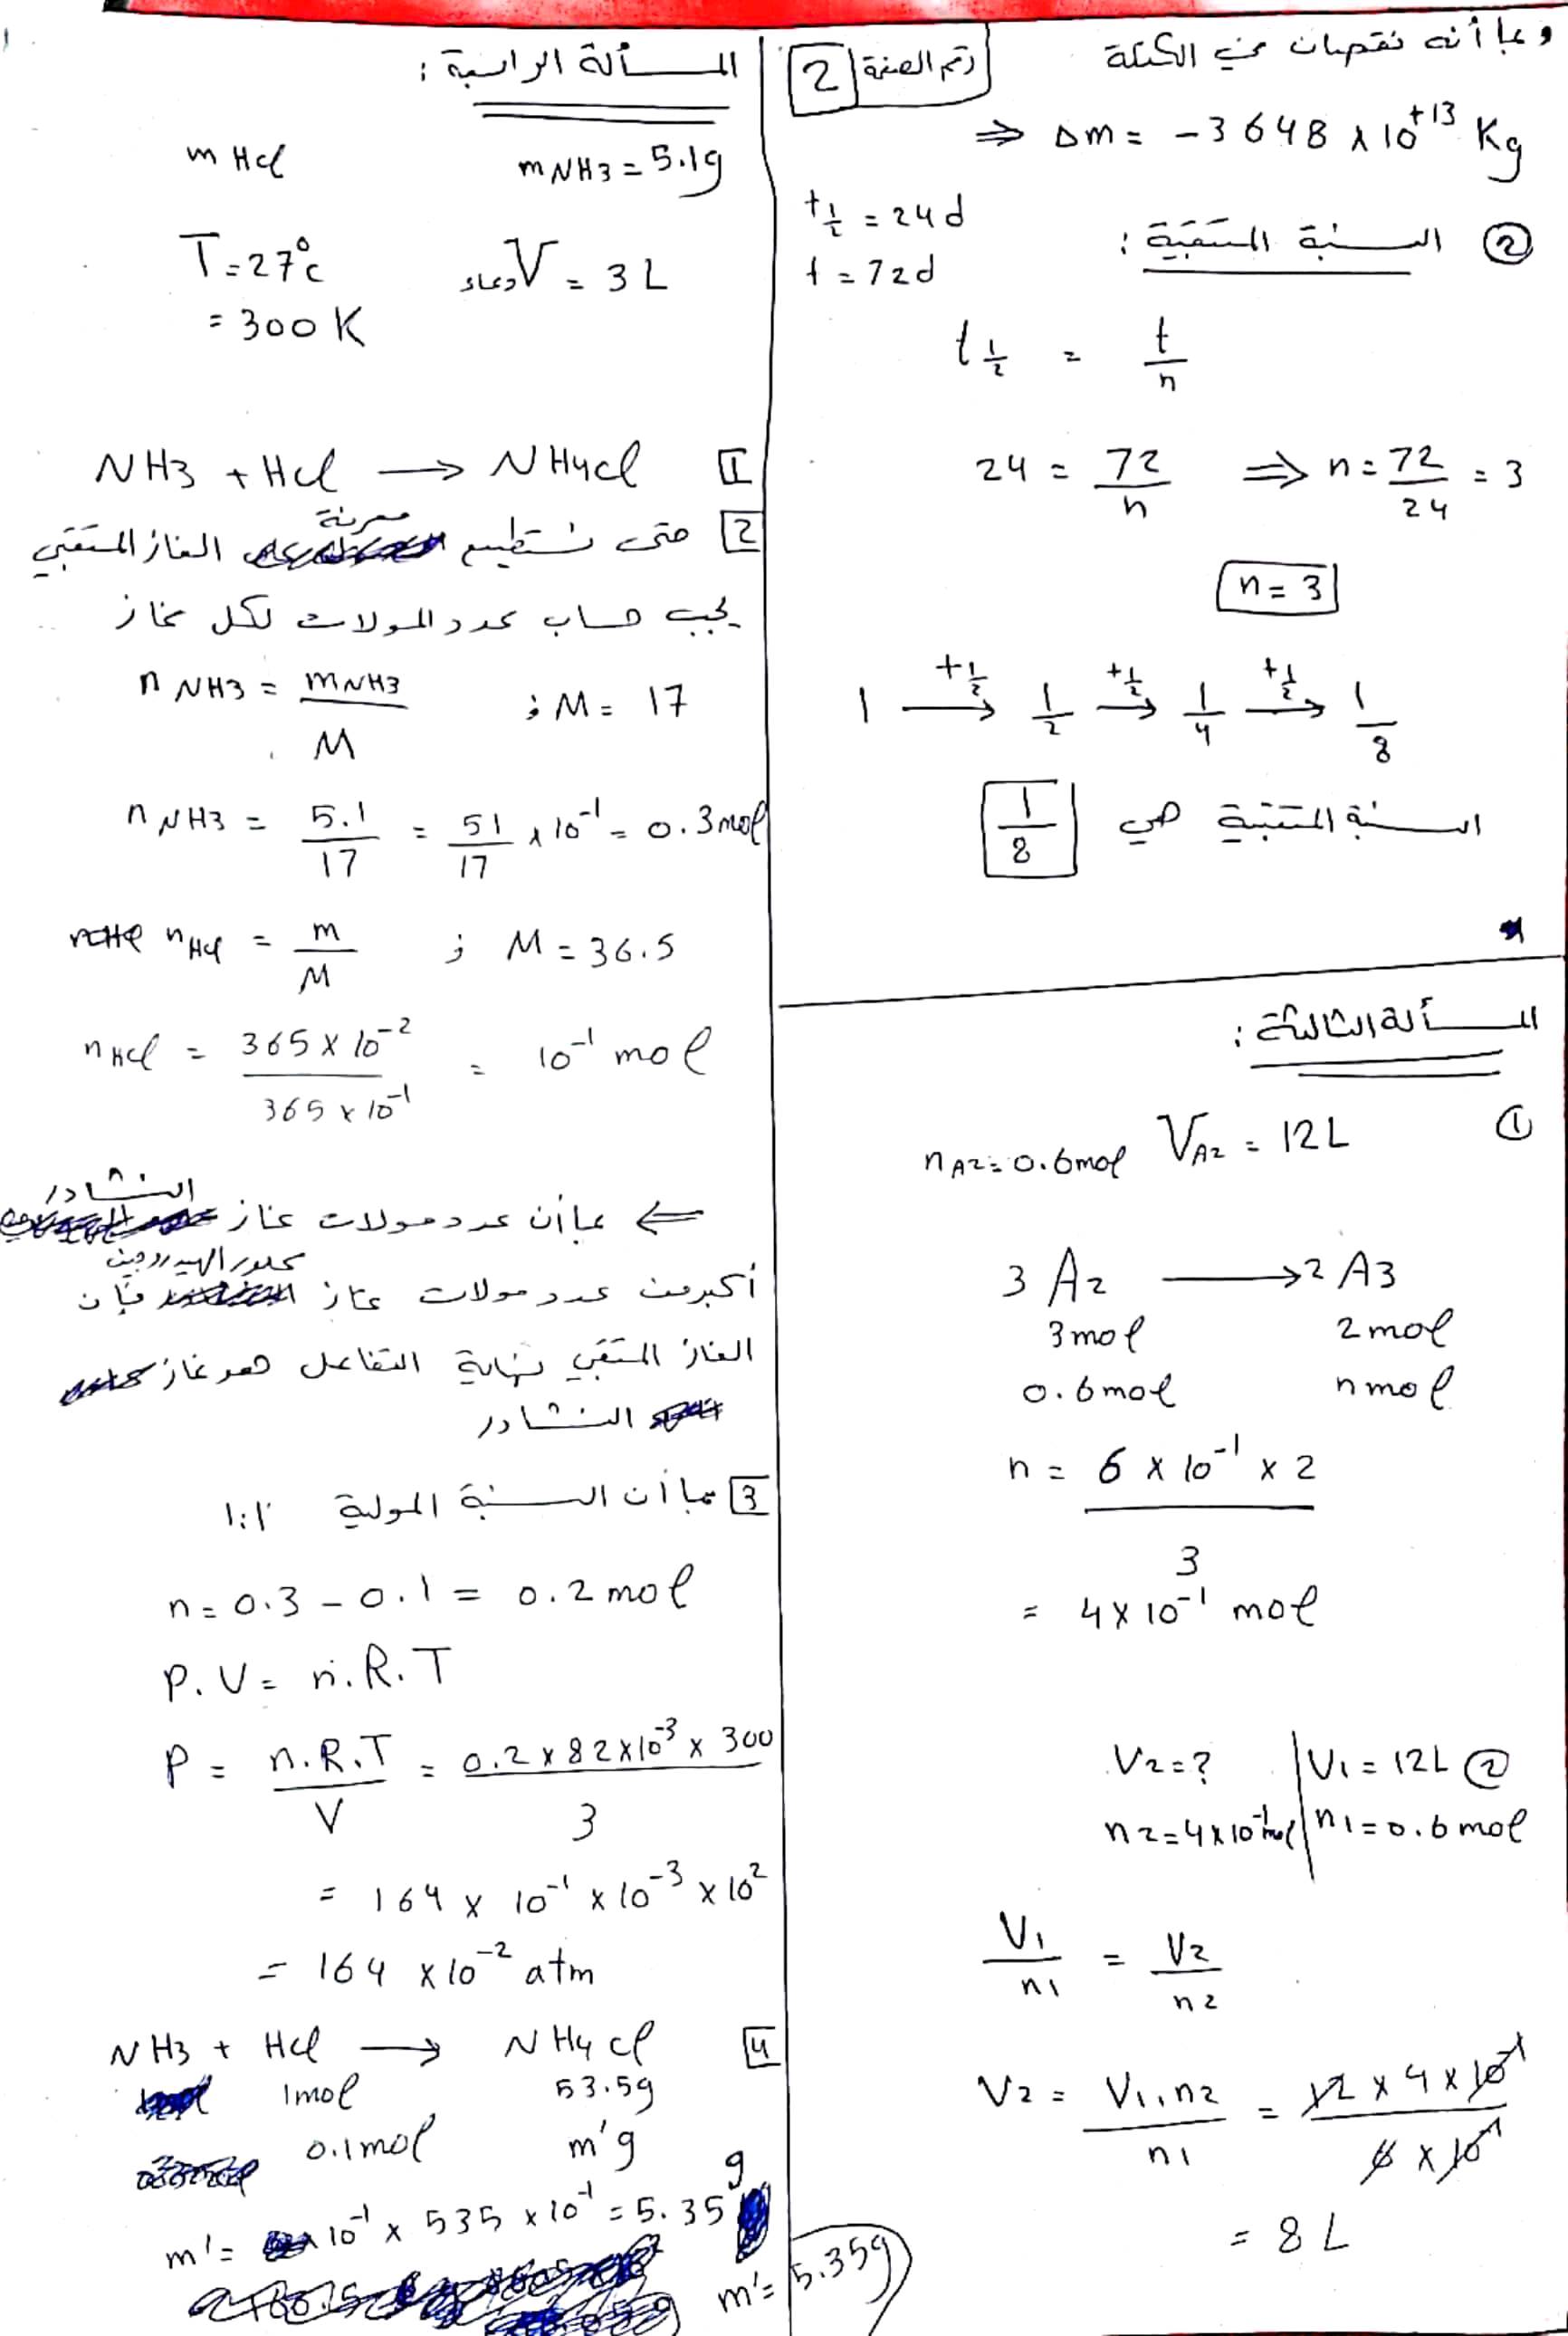 وبما أنه نقصان في الكتلة
رقم الصفحة 2
⇒ Δm = -3648 × 10^+13 Kg
② النسبة المتبقية :
t½ = 24d
t = 72d
t½ = t/n
24 = 72/n ⇒ n = 72/24 = 3
n = 3
1 —t½→ 1/2 —t½→ 1/4 —t½→ 1/8
النسبة المتبقية هي 1/8
المسألة الثالثة :
① V A2 = 12L n A2 = 0.6mol
3 A2 → 2 A3
3mol 2mol
0.6mol n mol
n = 6 × 10^-1 × 2 / 3
= 4 × 10^-1 mol
② V1 = 12L | V2 = ?
n1 = 0.6mol | n2 = 4×10^-1 mol
V1/n1 = V2/n2
V2 = V1.n2/n1 = 12 × 4 × 10^-1 / 6 × 10^-1
= 8L
المسألة الرابعة :
m HCl m NH3 = 5.1g
T = 27°c وعاء V = 3L
= 300 K
1 NH3 + HCl → NH4Cl
2 حتى نستطيع معرفة الغاز المتبقي
يجب حساب عدد المولات لكل غاز
n NH3 = m NH3 / M ; M = 17
n NH3 = 5.1/17 = 51/17 × 10^-1 = 0.3mol
n HCl = m/M ; M = 36.5
n HCl = 365 × 10^-2 / 365 × 10^-1 = 10^-1 mol
⇐ بما أن عدد مولات غاز النشادر
أكبر من عدد مولات غاز كلور الهيدروجين فإن
الغاز المتبقي نهاية التفاعل هو غاز
النشادر
3 بما أن النسبة المولية 1:1
n = 0.3 - 0.1 = 0.2 mol
P.V = n.R.T
P = n.R.T/V = 0.2 × 82×10^-3 × 300 / 3
= 164 × 10^-1 × 10^-3 × 10^2
= 164 × 10^-2 atm
4 NH3 + HCl → NH4Cl
1mol 53.5g
0.1mol m'g
m' = 10^-1 × 535 × 10^-1 = 5.35 g
m' = 5.35g